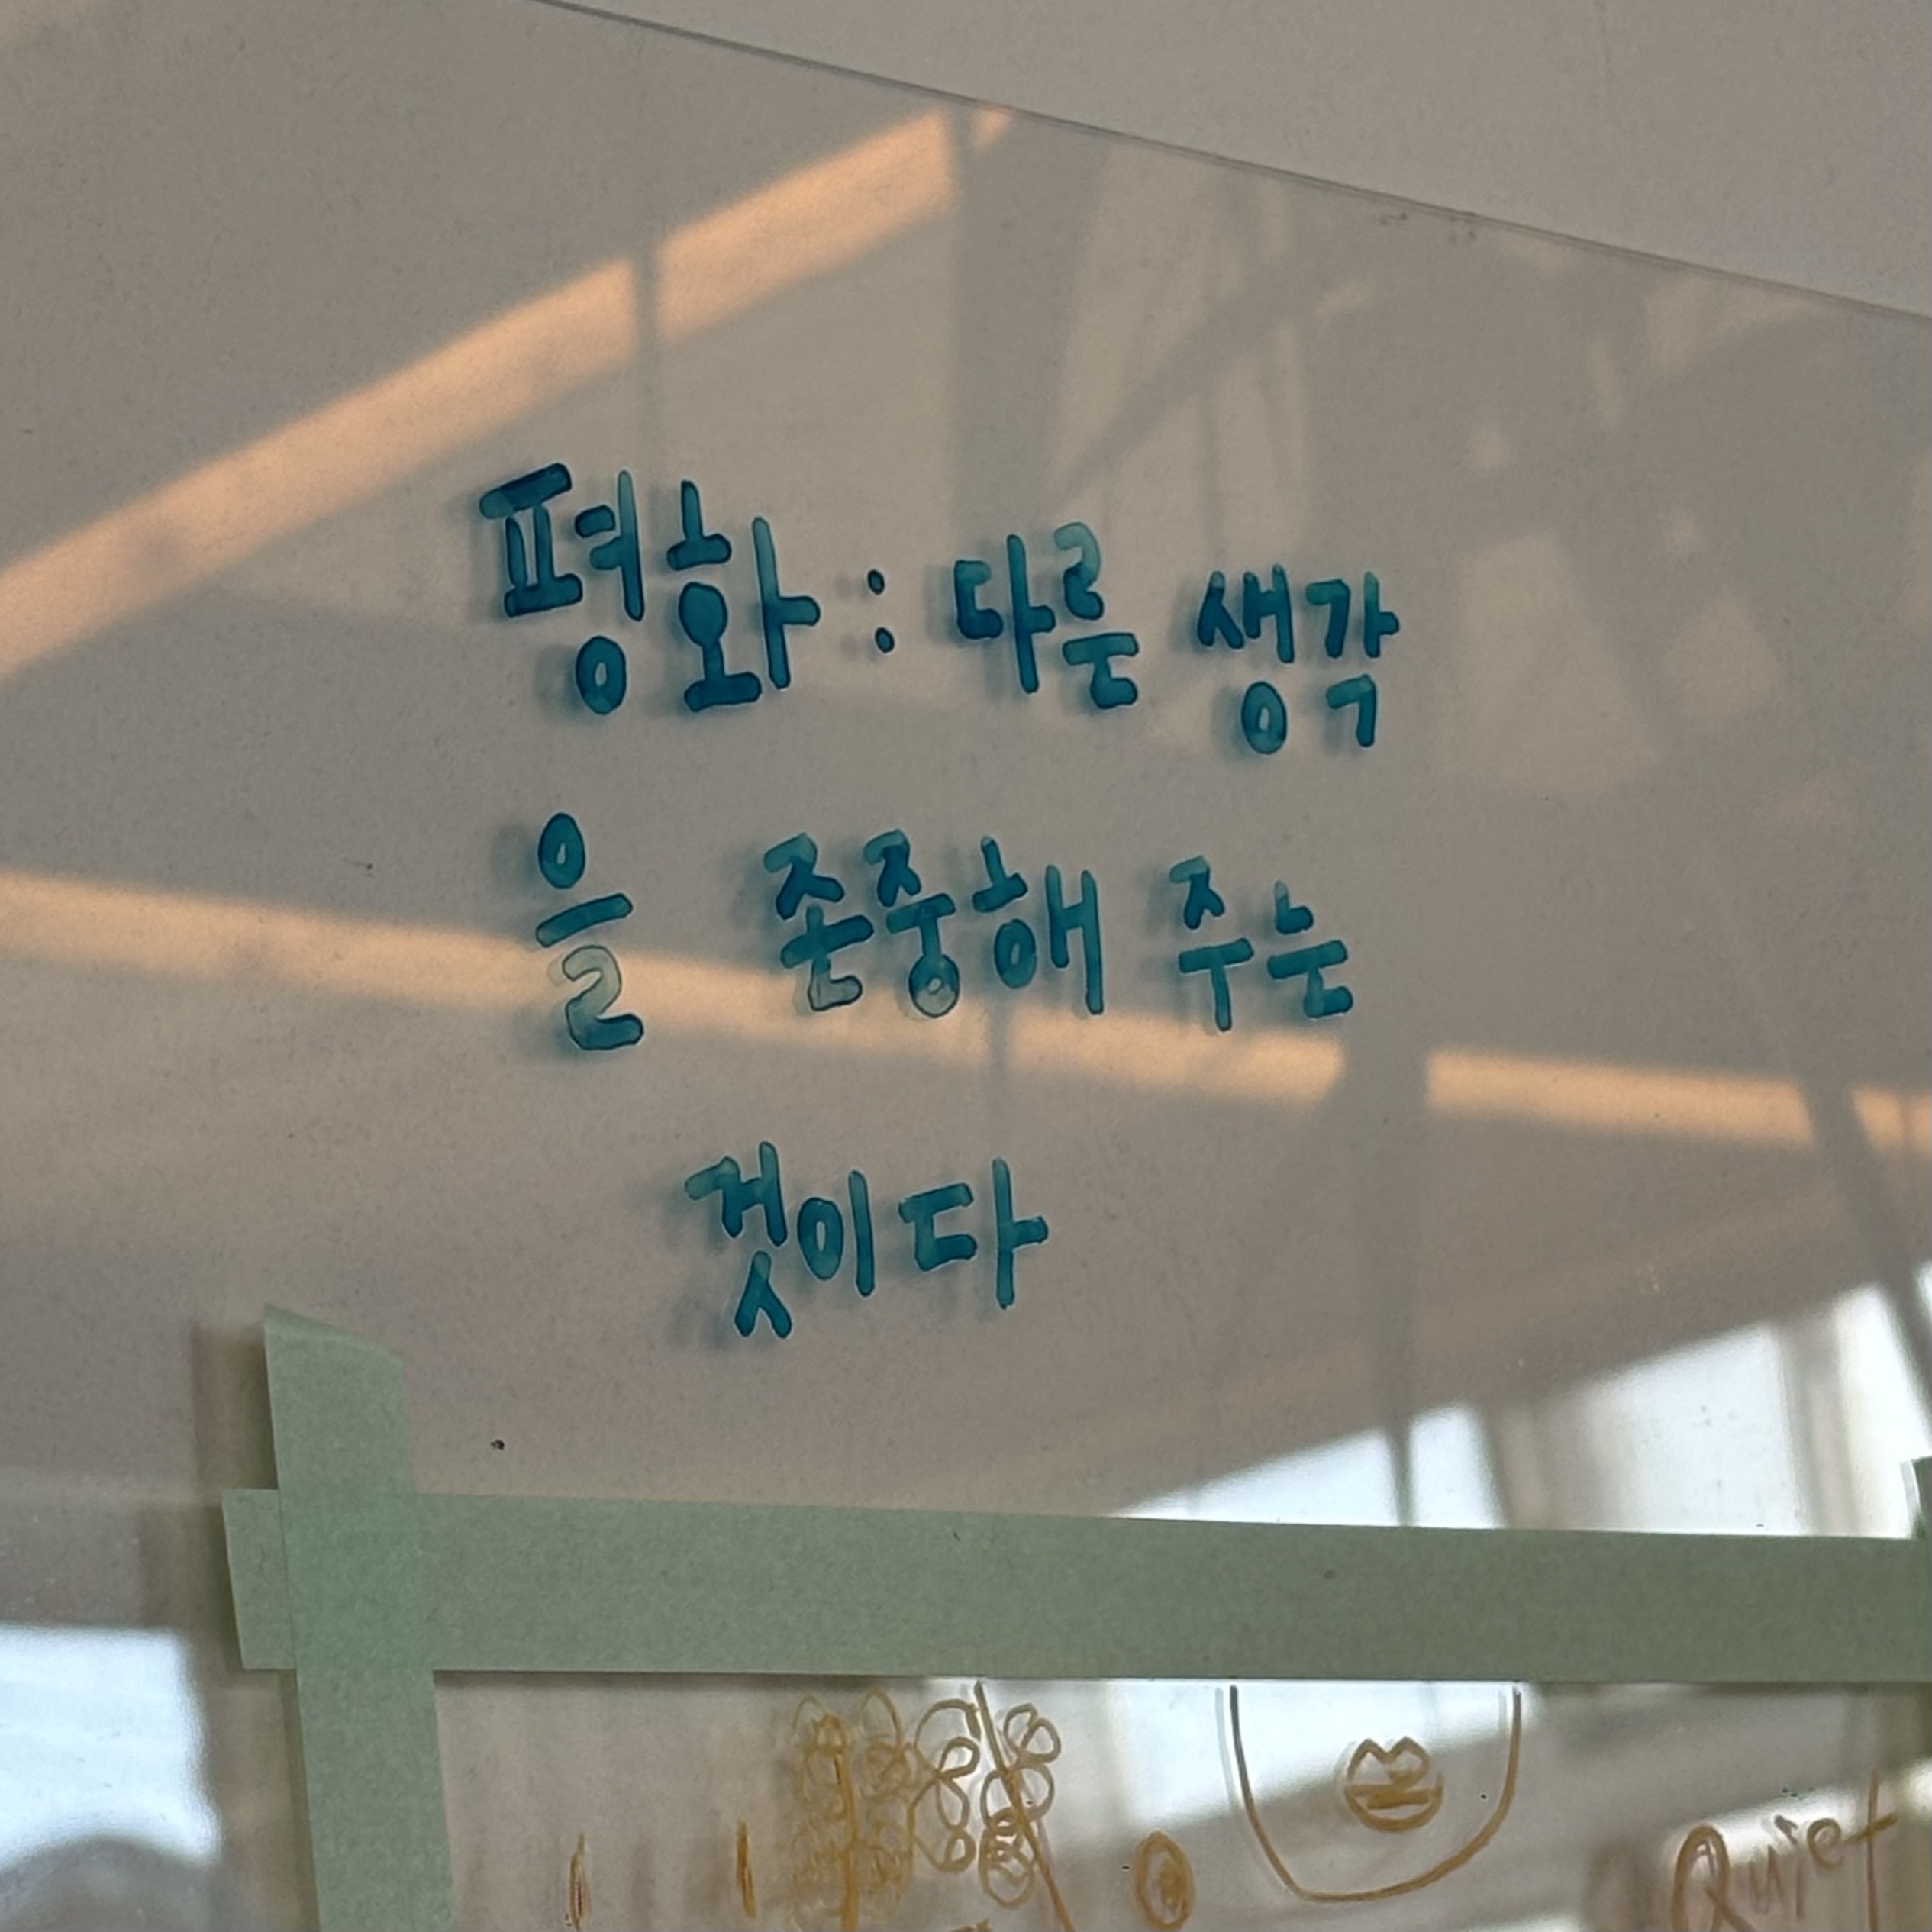 평화 : 다른 생각
을 존중해 주는
것이다
Quiet